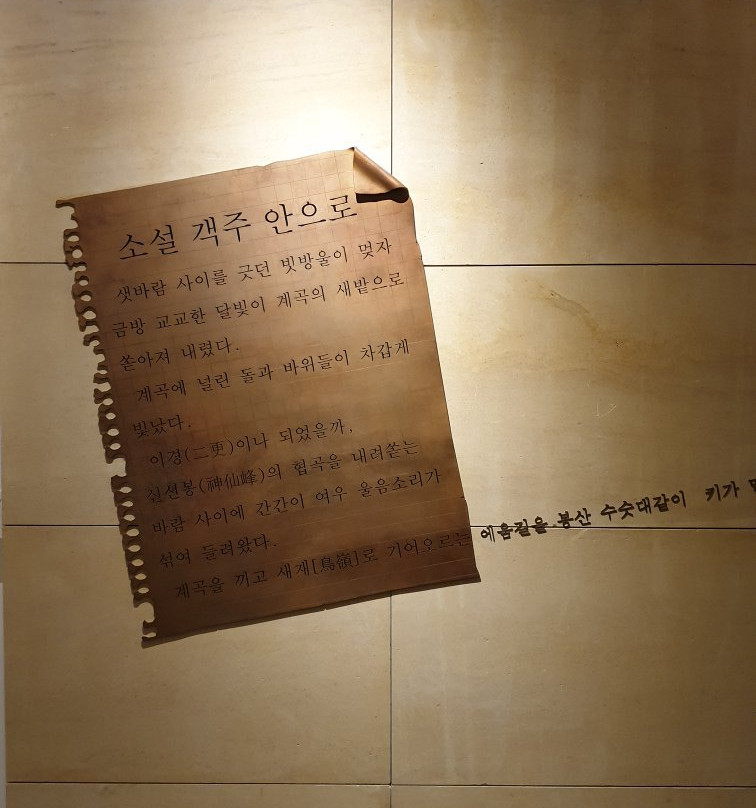 소설 객주 안으로
샛바람 사이를 긋던 빗방울이 멎자
금방 교교한 달빛이 계곡의 새밭으로
쏟아져 내렸다.
계곡에 널린 돌과 바위들이 차갑게
빛났다.
이경(二更)이나 되었을까,
신선봉(神仙峰)의 협곡을 내려쏟는
바람 사이에 간간이 여우 울음소리가
섞여 들려왔다.
계곡을 끼고 새재[鳥嶺]로 기어오르는 에움길을 봉산 수숫대같이 키가